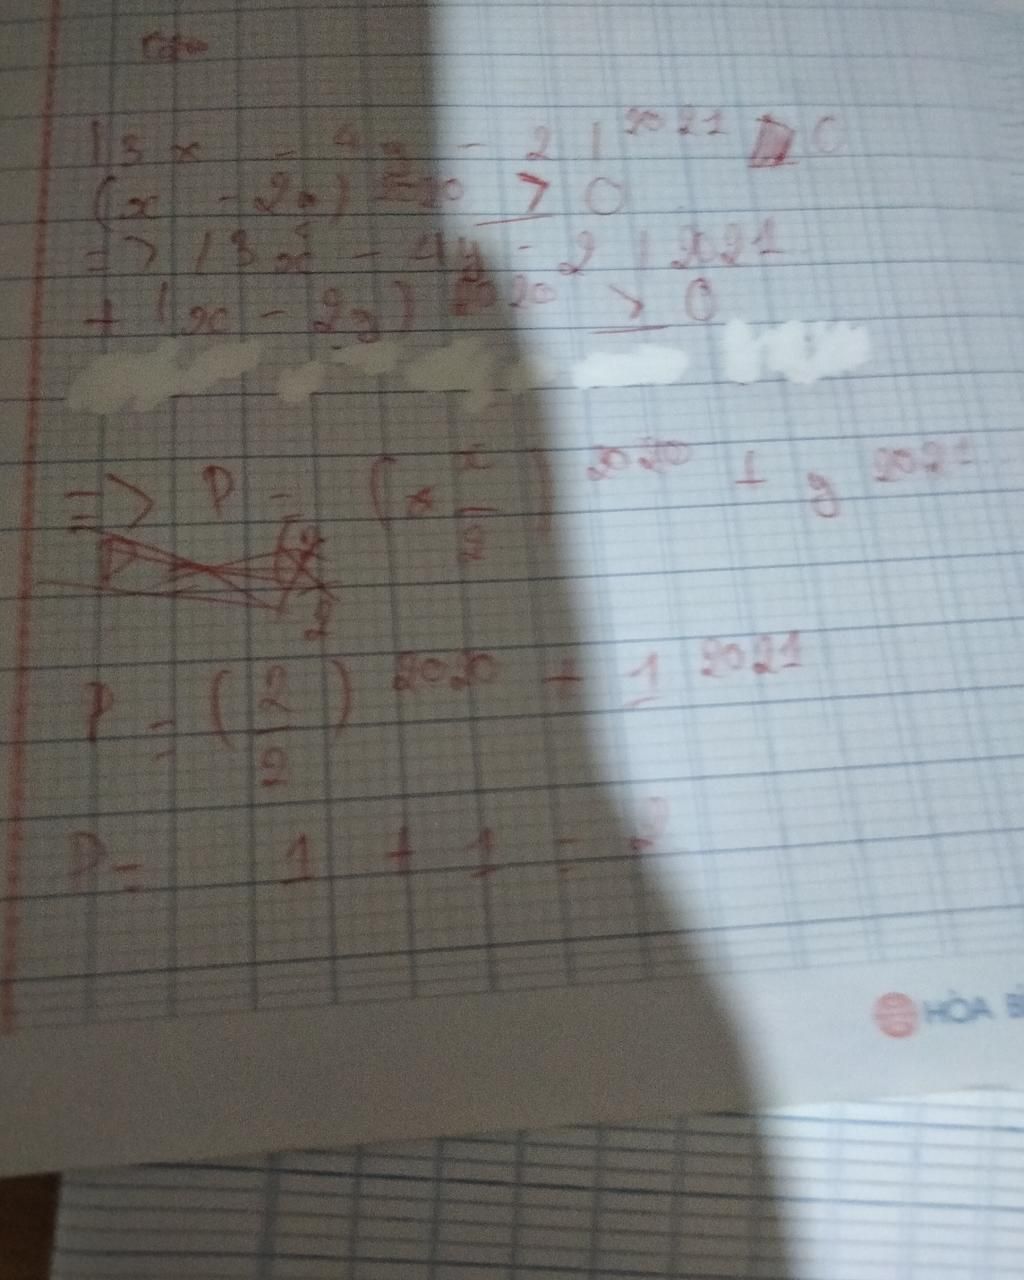 |3x - 4y - 2|²⁰²¹ ≥ 0
(x - 2y)²⁰²⁰ ≥ 0
=> |3x - 4y - 2|²⁰²¹
+ (x - 2y)²⁰²⁰ ≥ 0
=> P = 2020 + y 2021
P = (2/2)²⁰²⁰ + 1²⁰²¹
P = 1 + 1 = 2
HÒA